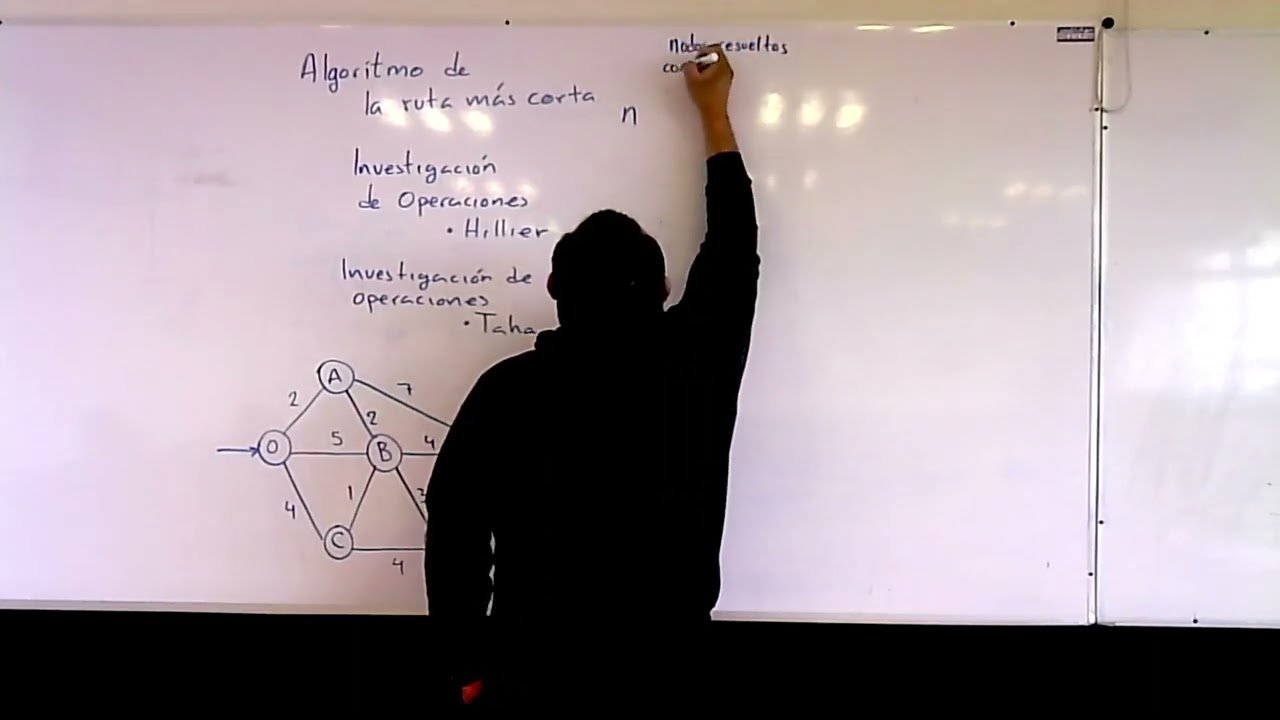 Algoritmo de
la ruta más corta
Investigación
de Operaciones
• Hillier
Investigación de
operaciones
• Taha
resueltos
n
A
7
2
2
O
5
B
4
4
1
3
C
4